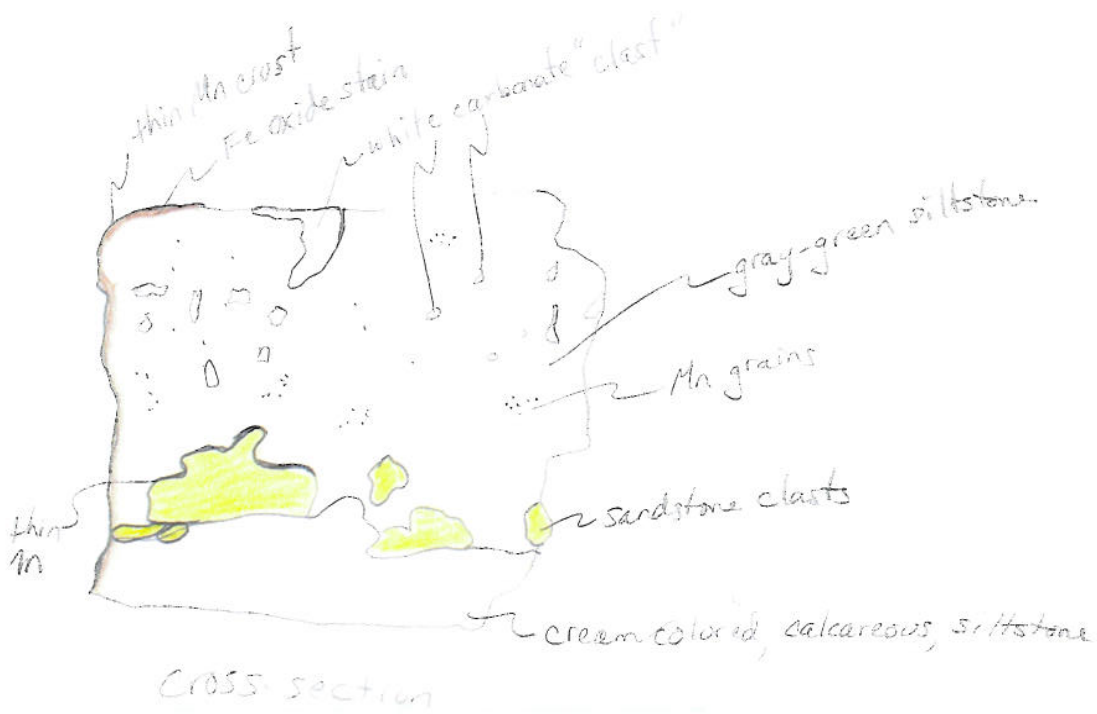 thin Mn crust
Fe oxide stain
white carbonate "clast"
gray-green siltstone
Mn grains
sandstone clasts
thin
Mn
cream colored, calcareous, siltstone
cross-section